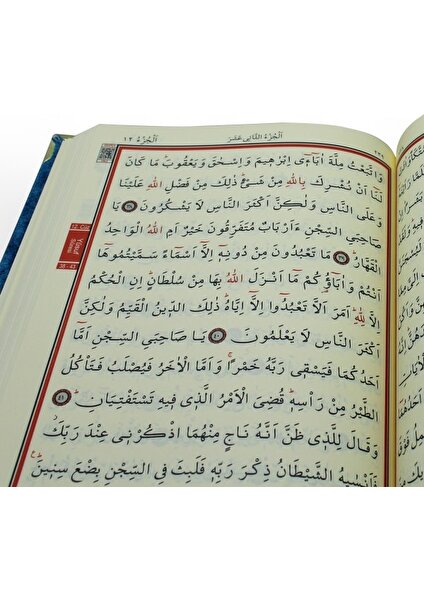 اَلْجُزْءُ الثَّانِي عَشَرَ
اَلْجُزْءُ ١٢
٢٣٩
وَاتَّبَعْتُ مِلَّةَ اٰبَٓاء۪ٓي اِبْرٰه۪يمَ وَاِسْحٰقَ وَيَعْقُوبَۜ مَا كَانَ
لَنَٓا اَنْ نُشْرِكَ بِاللّٰهِ مِنْ شَيْءٍۜ ذٰلِكَ مِنْ فَضْلِ اللّٰهِ عَلَيْنَا
وَعَلَى النَّاسِ وَلٰكِنَّ اَكْثَرَ النَّاسِ لَا يَشْكُرُونَ ﴿٣٨﴾ يَا
صَاحِبَيِ السِّجْنِ ءَاَرْبَابٌ مُتَفَرِّقُونَ خَيْرٌ اَمِ اللّٰهُ الْوَاحِدُ
الْقَهَّارُۜ ﴿٣٩﴾ مَا تَعْبُدُونَ مِنْ دُونِه۪ٓ اِلَّٓا اَسْمَٓاءً سَمَّيْتُمُوهَٓا
اَنْتُمْ وَاٰبَٓاؤُ۬كُمْ مَٓا اَنْزَلَ اللّٰهُ بِهَا مِنْ سُلْطَانٍۜ اِنِ الْحُكْمُ
اِلَّا لِلّٰهِۜ اَمَرَ اَلَّا تَعْبُدُٓوا اِلَّٓا اِيَّاهُۜ ذٰلِكَ الدّ۪ينُ الْقَيِّمُ وَلٰكِنَّ
اَكْثَرَ النَّاسِ لَا يَعْلَمُونَ ﴿٤٠﴾ يَا صَاحِبَيِ السِّجْنِ اَمَّٓا
اَحَدُكُمَا فَيَسْق۪ي رَبَّهُ خَمْرًاۚ وَاَمَّا الْاٰخَرُ فَيُصْلَبُ فَتَأْكُلُ
الطَّيْرُ مِنْ رَأْسِه۪ۜ قُضِيَ الْاَمْرُ الَّذ۪ي ف۪يهِ تَسْتَفْتِيَانِۜ ﴿٤١﴾
وَقَالَ لِلَّذ۪ي ظَنَّ اَنَّهُ نَاجٍ مِنْهُمَا اذْكُرْن۪ي عِنْدَ رَبِّكَۘ
فَاَنْسٰيهُ الشَّيْطَانُ ذِكْرَ رَبِّه۪ فَلَبِثَ فِي السِّجْنِ بِضْعَ سِن۪ينَۜ
Yusuf
Sûresi
38 - 42